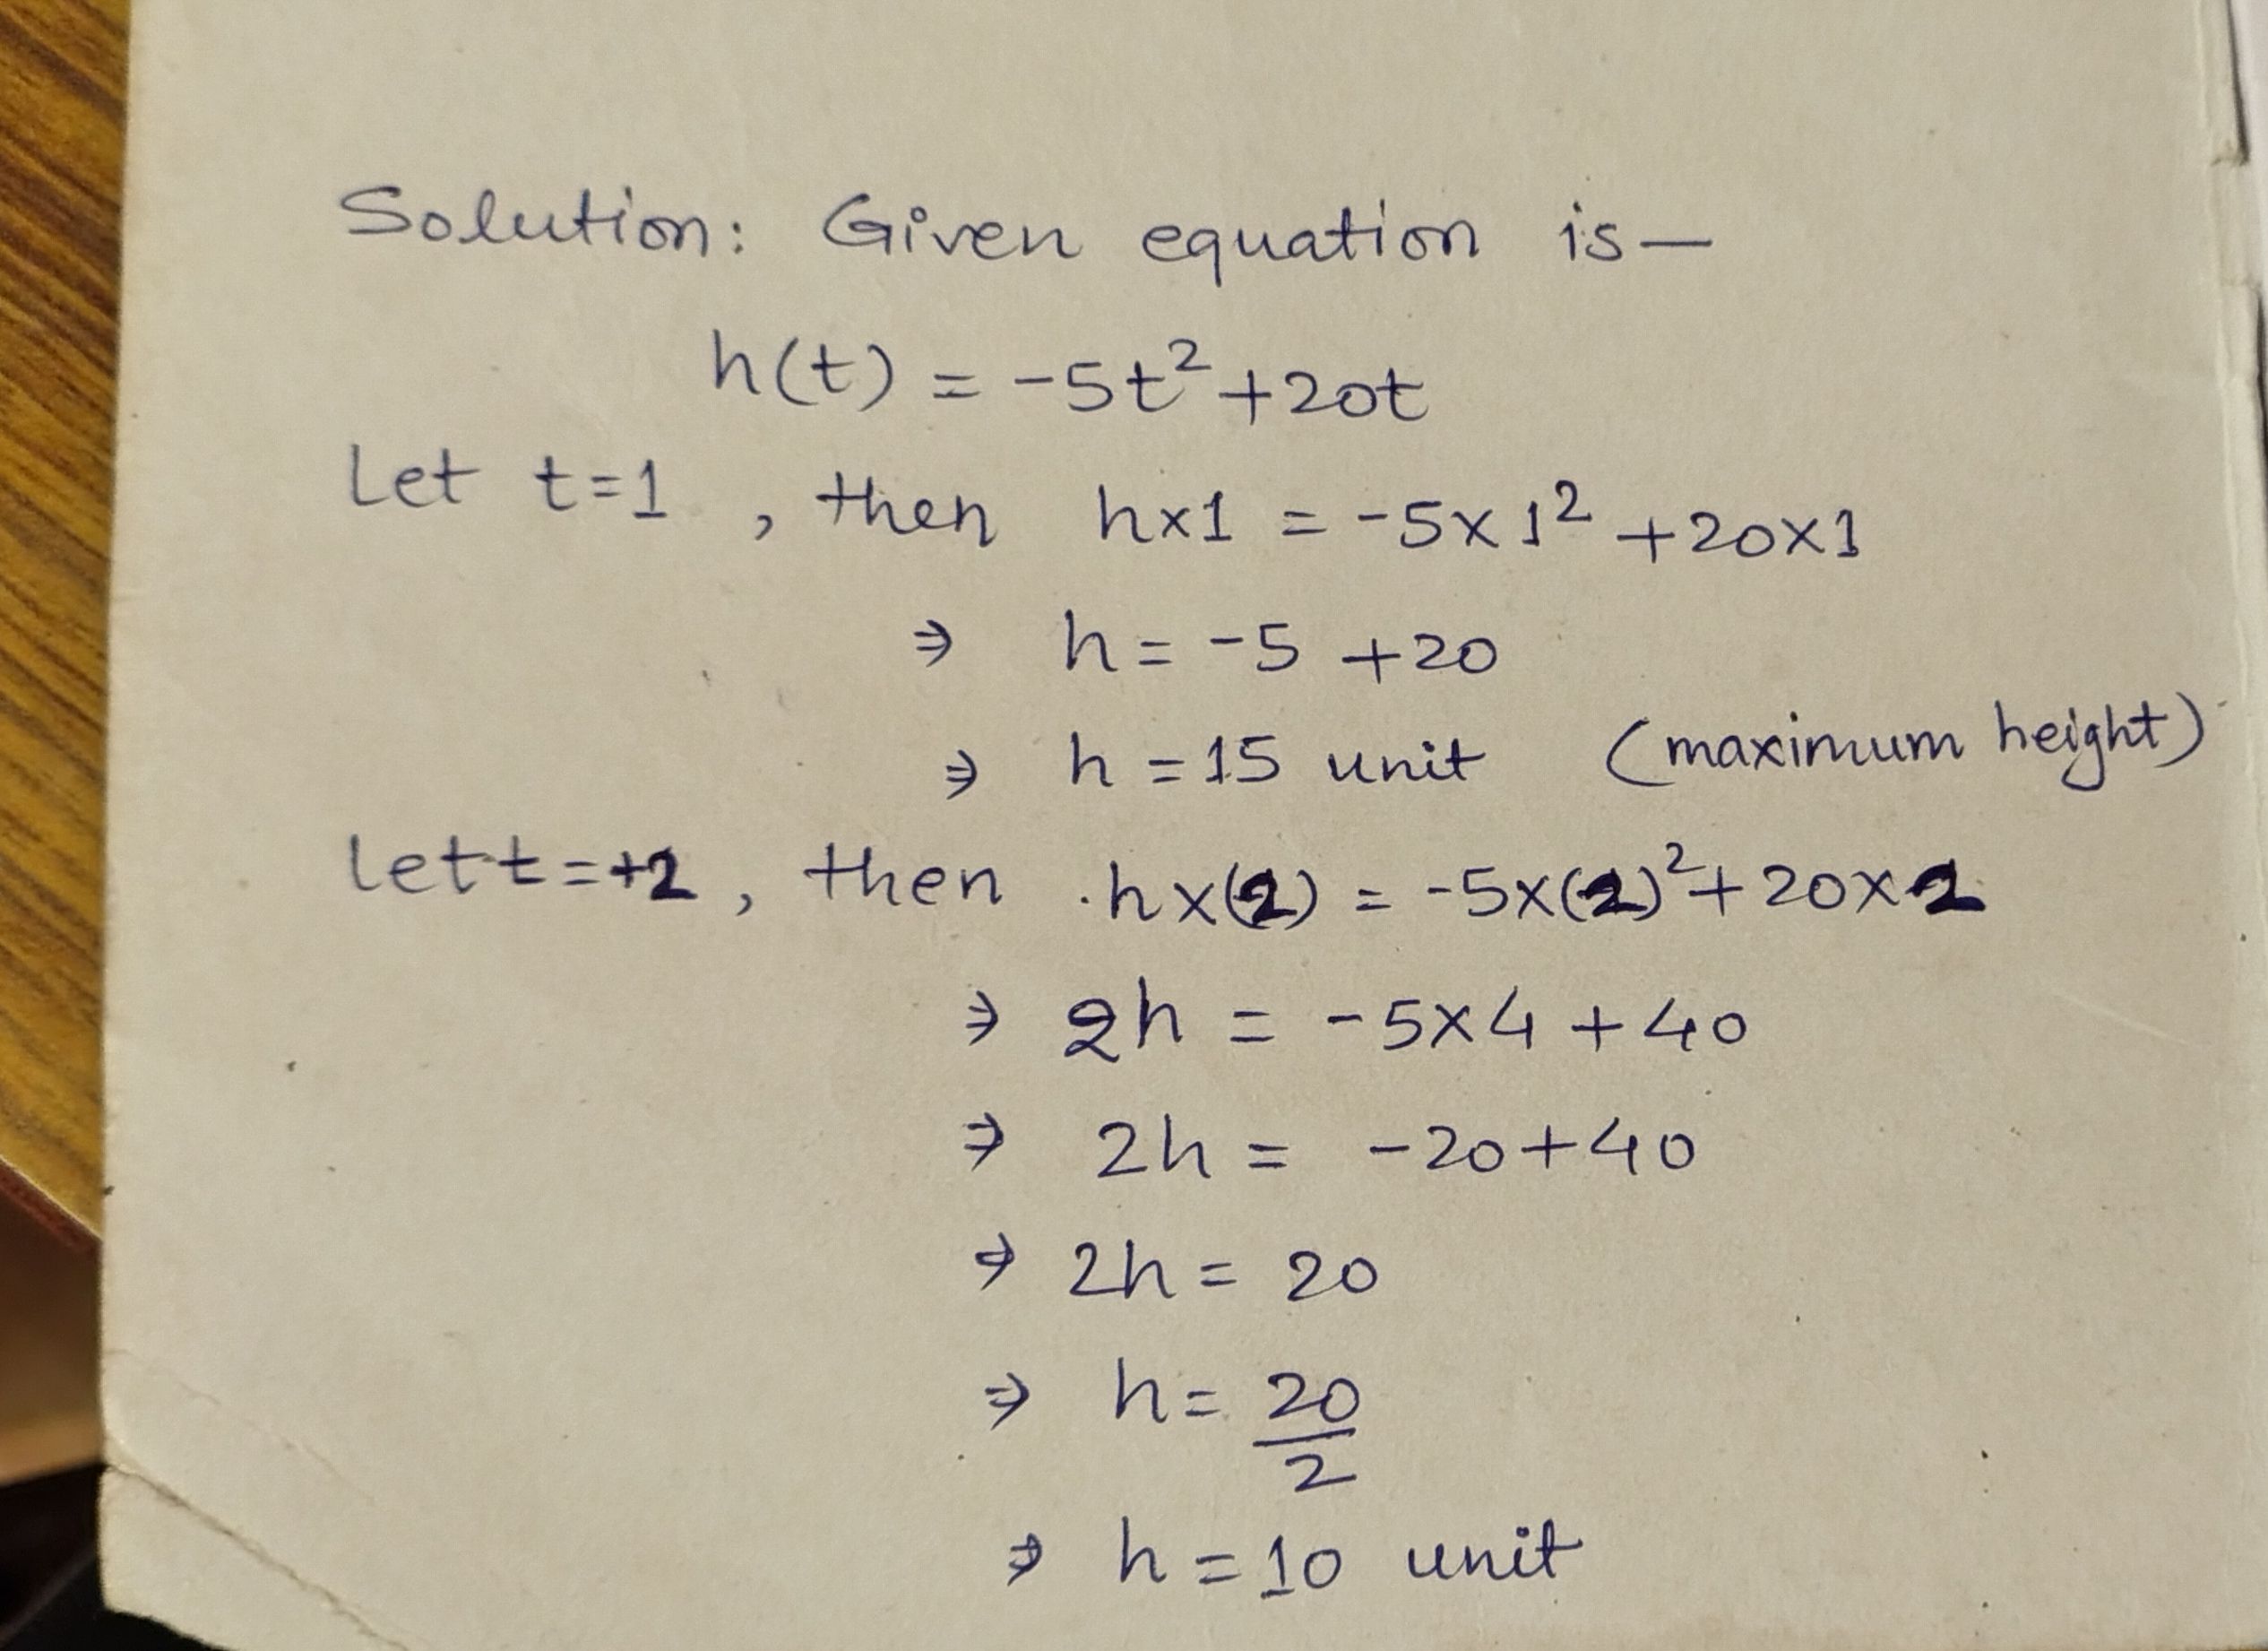 Solution: Given equation is—
h(t) = -5t² +20t
Let t=1 , then h×1 = -5×1² +20×1
⇒ h = -5 +20
⇒ h = 15 unit (maximum height)
Let t=+2, then h×(2) = -5×(2)²+20×2
⇒ 2h = -5×4 +40
⇒ 2h = -20+40
⇒ 2h = 20
⇒ h = 20/2
⇒ h = 10 unit